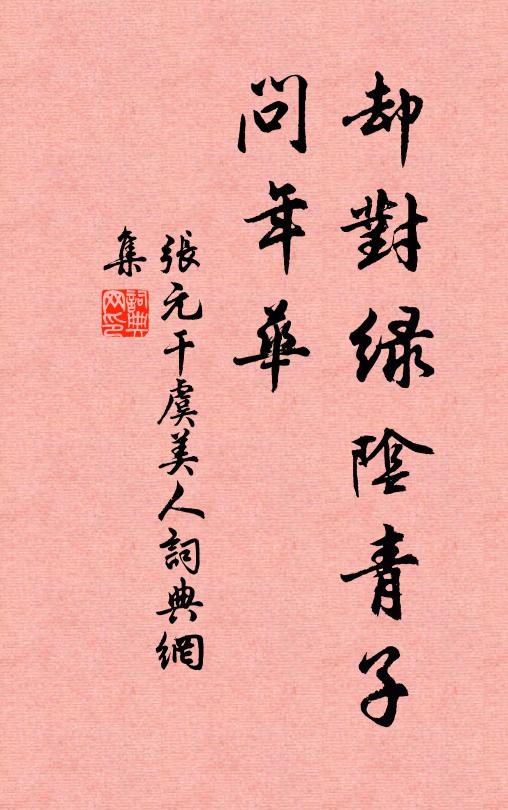 却對緑陰青子
問年華
張元干虞美人詞典網
集
詞典
网印